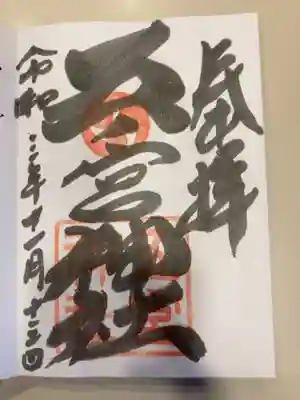 奉拝
五宮神社
令和三年十一月十三日